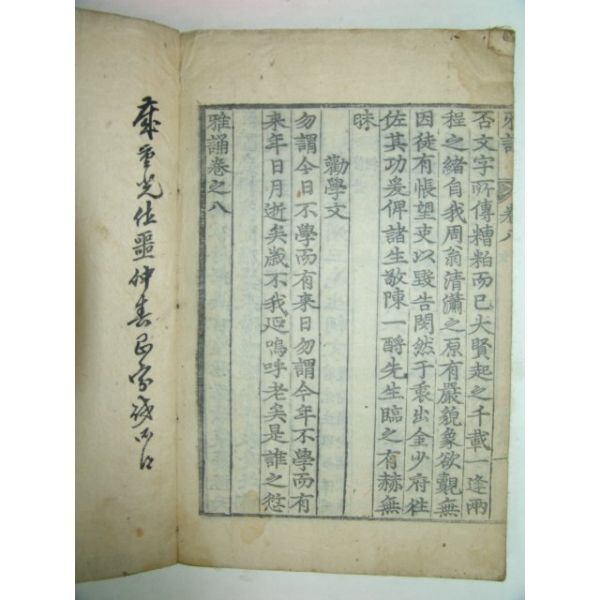 雅誦 卷八
否文字所傳糟粕而已大賢起之千載一逢兩
程之緒自我周翁清瀟之原有嚴貌象欲覿無
因徒有悵望吏以毀告閔然于衷出金少府往
佐其功爰俾諸生敬陳一酹先生臨之有赫無
昧
勸學文
勿謂今日不學而有来日勿謂今年不學而有
来年日月逝矣歲不我延嗚呼老矣是誰之愆
雅誦卷之八
歲重光作噩仲春